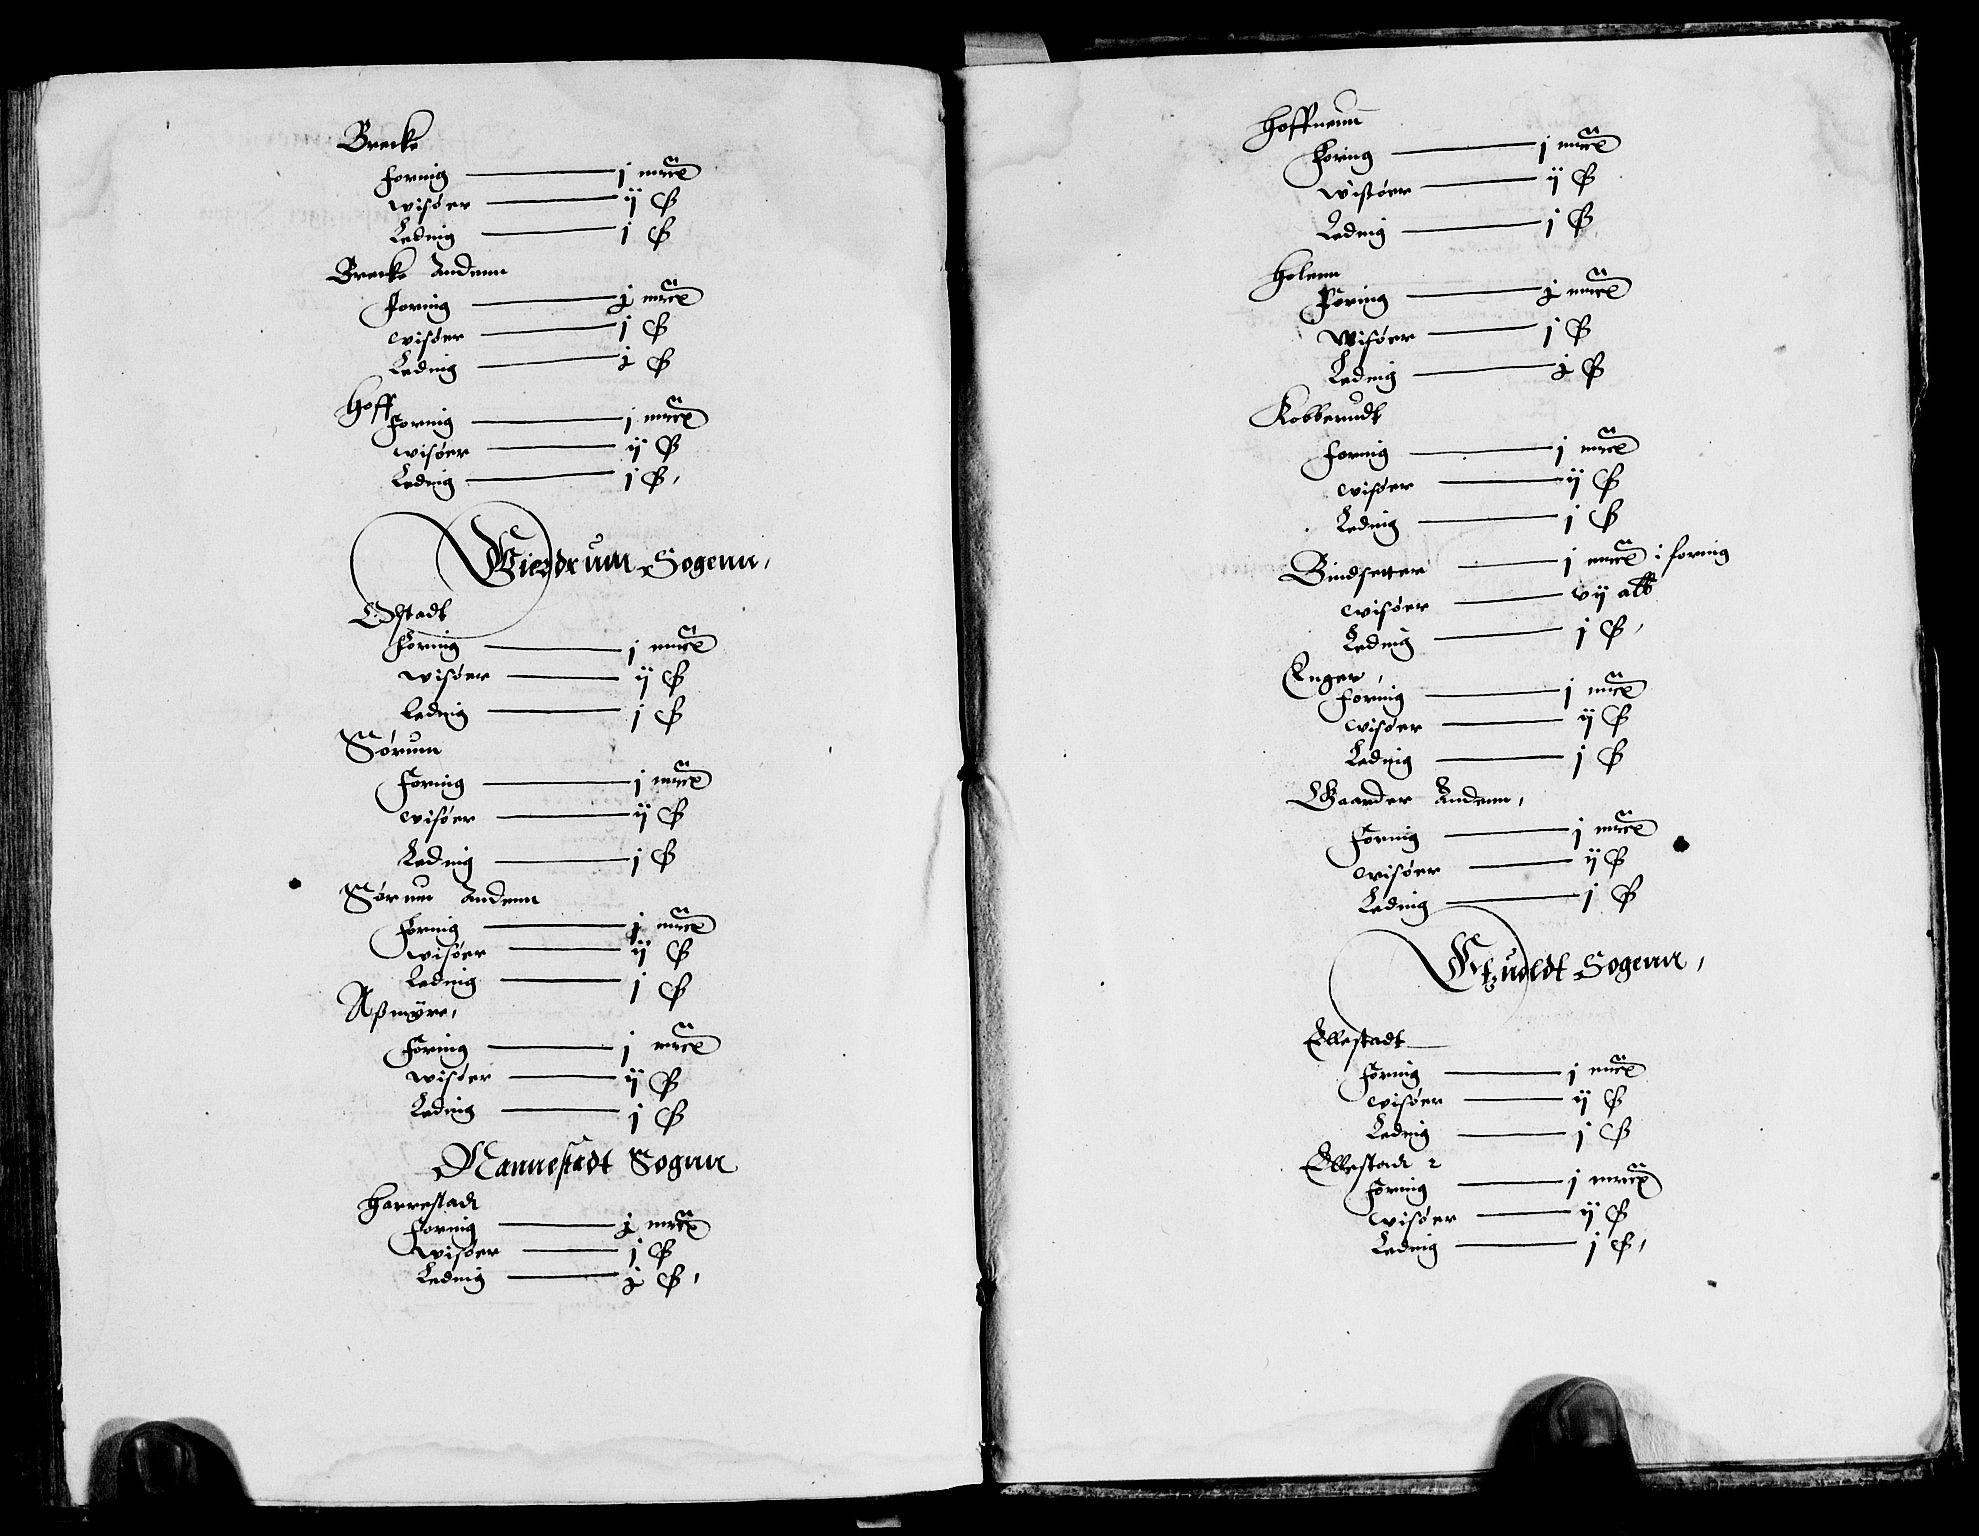 Brecke
Foring j mrck
wisøer ij ß
Leding j ß
Brecke Andenn
Foring j mrck
wisøer j ß
Leding j ß
Hoff
Foring j mrck
wisøer ij ß
Leding j ß,
Sogenn,
Foring j mrck
wisøer ij ß
Leding j ß
Sørum
Foring j mrck
wisøer ij ß
Leding j ß
Sørum Andenn
Foring j mrck
wisøer ij ß
Leding j ß
Aßmÿre,
Foring j mrck
wisøer ij ß
Leding j ß
Nannestadt Sogenn
Harrestadt
Foring j mrck
wisøer j ß
Leding j ß,
Hoffuenn
Foring j mrck
wisøer ij ß
Leding j ß,
Holenn
Foring j mrck
wisøer j ß
Leding j ß
Kobberudt
Foring j mrck
wisøer ij ß
Leding j ß
Bindsetter j mrck i foring
wisøer vij alb
Leding j ß,
Enger,
Foring j mrck
wisøer ij ß
Leding j ß
Gaarder Andenn,
Foring j mrck
wisøer ij ß
Leding j ß
Sogenn,
Ellestadt
Foring j mrck
wisøer ij ß
Leding j ß
Ellestadt 2
Foring j mrck
wisøer ij ß
Leding j ß,